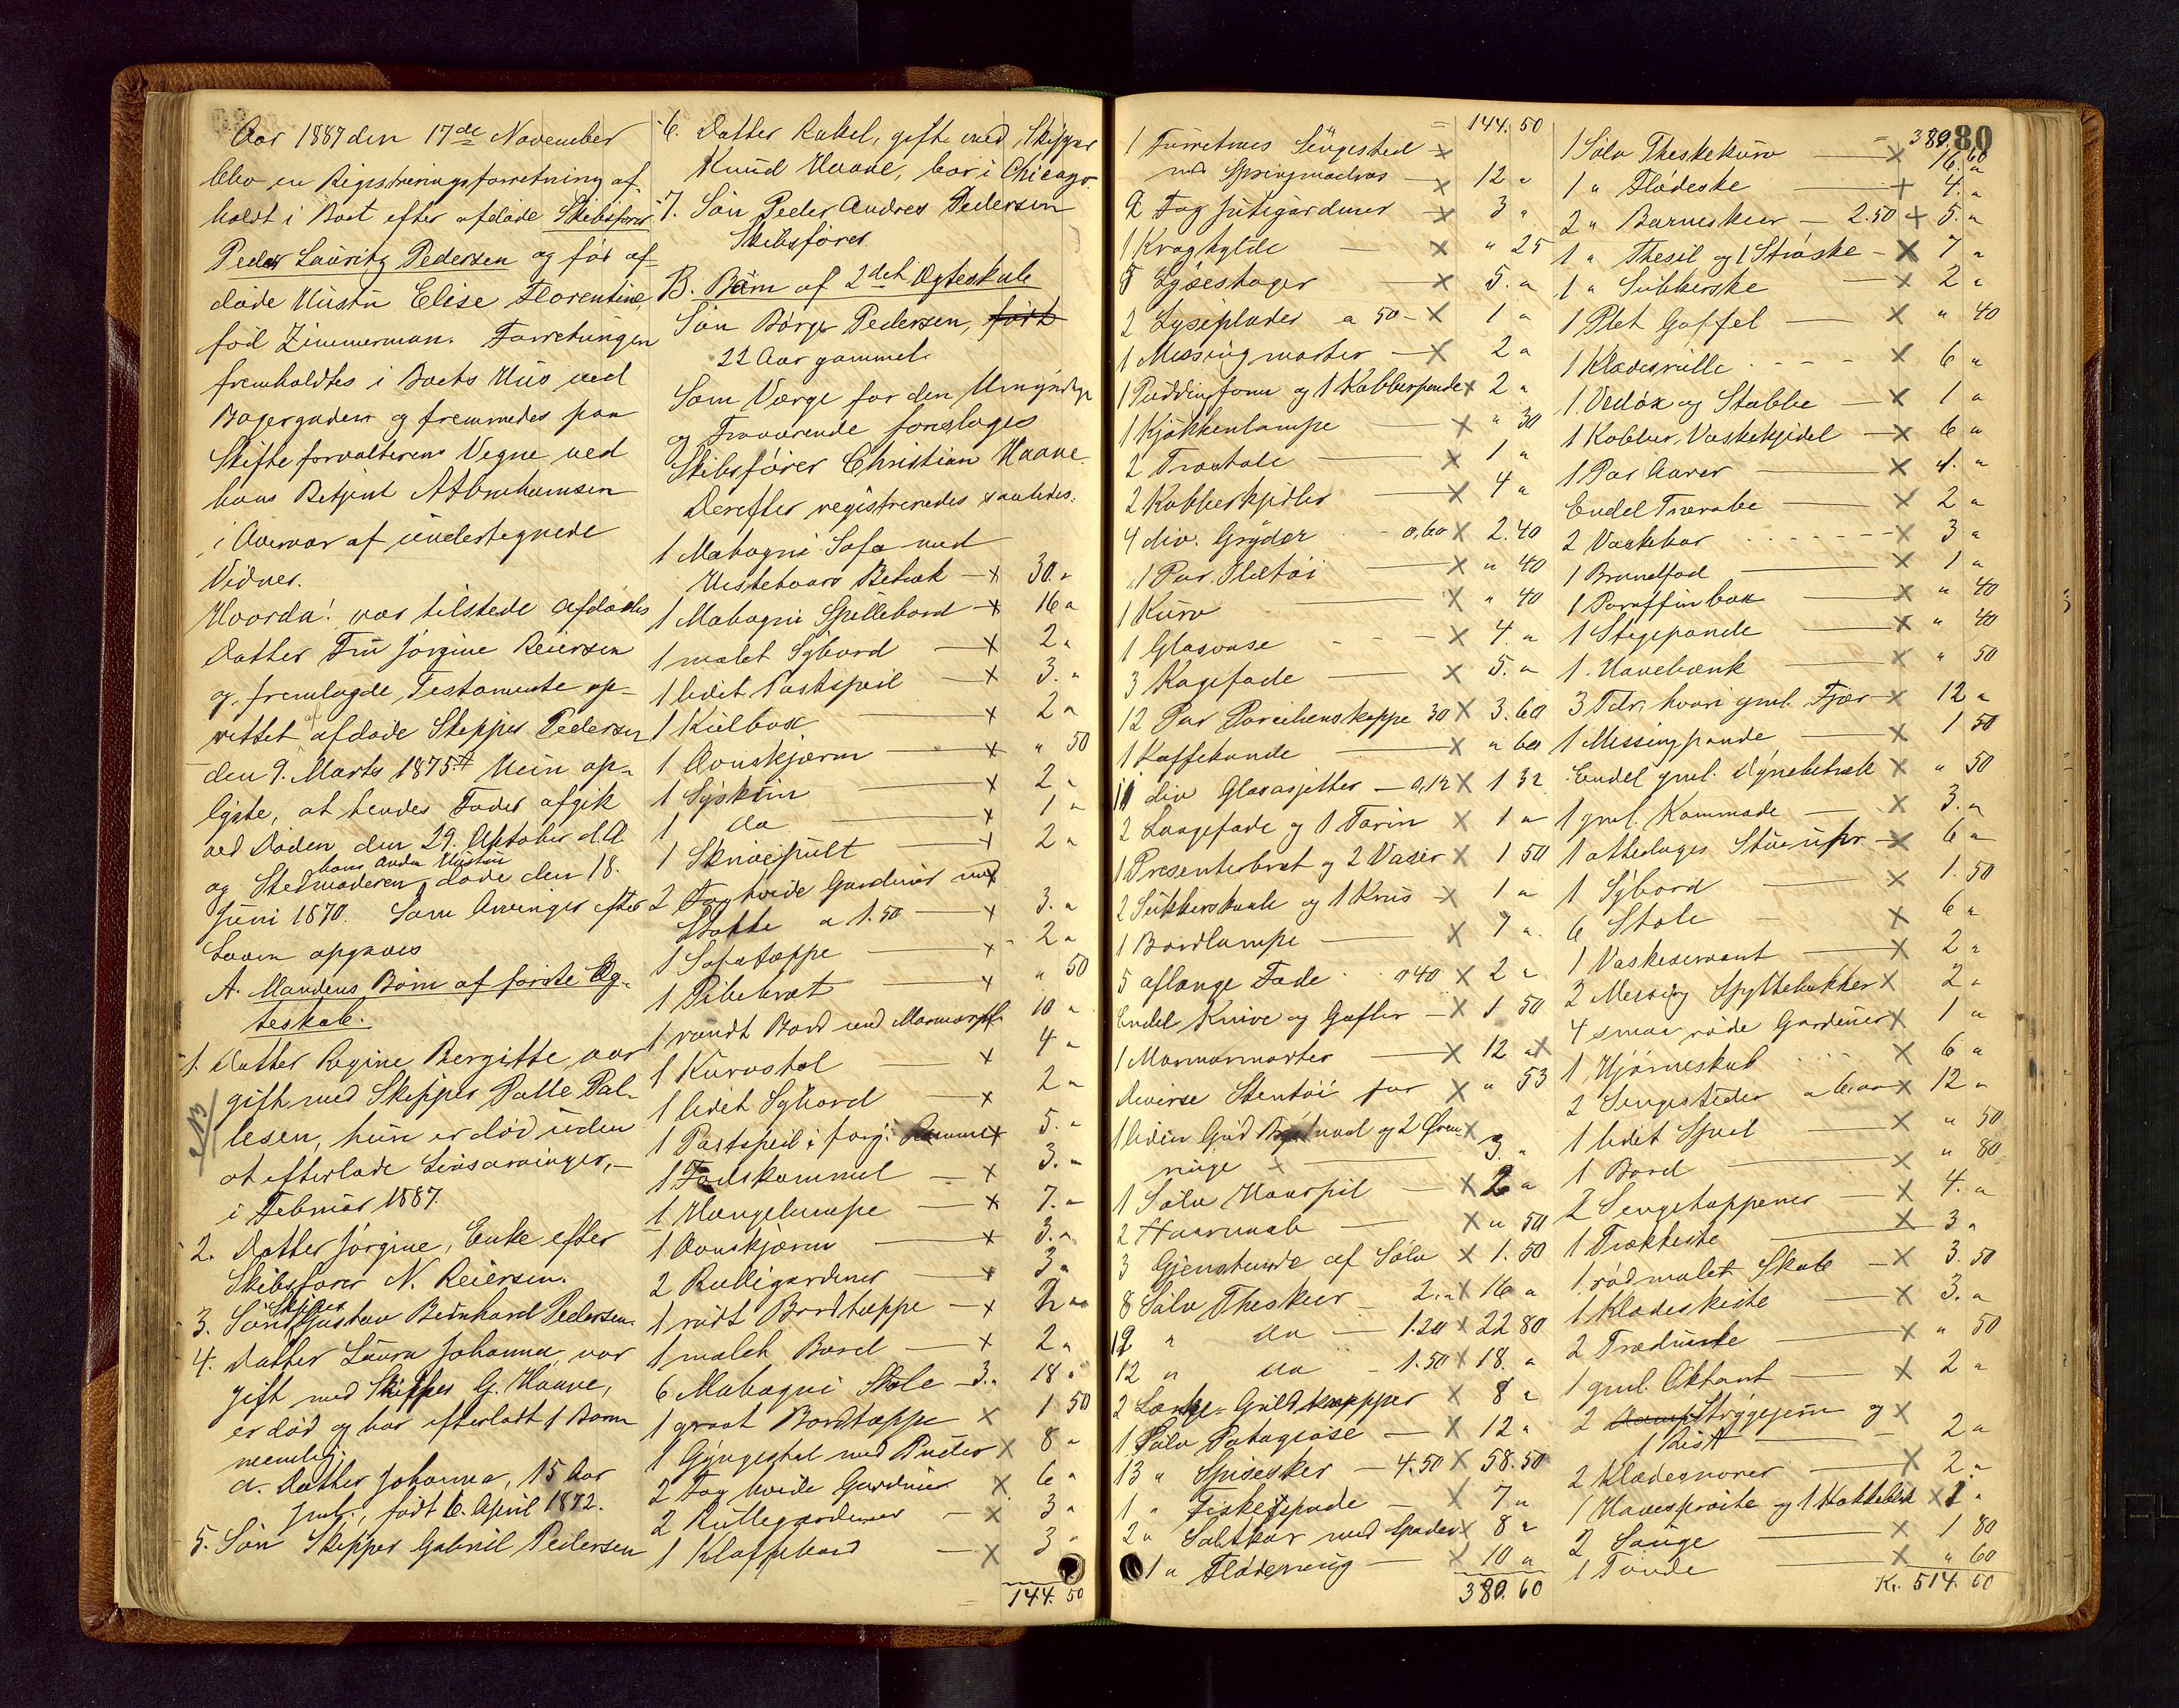 Aar 1887 den 17de November
blev en Registreringsforretning af-
holdt i Boet efter afdøde Skibsfører
Peder Lauritz Pedersen og før af-
døde Hustru Elise Florentine,
fød Zimmerman. Forretningen
fremholdtes i Boets Hus ved
Bagergaden og fremmedes paa
Skifteforvalterens Vegne ved
hans Betjent A Abrahamsen
i Overvær af undertegnede
Vidner.
Hvorda! var tilstede afdødes
Datter Fru Jørgine Reiersen
og fremlagde Testamente op-
rettet af afdøde Skipper Pedersen
den 9. Marts 1875. Hun op-
lyste, at hendes Fader afgik
ved Døden den 29. Oktober d.A
hans anden Hustru
og Stedmoderen døde den 18.
Juni 1870. Som Arvinger efter
Loven opgaves
A. Mandens Børn af første Æg-
teskab.
1. Datter Regine Bergitte, var
gift med Skipper Palle Pal-
lesen, hun er død uden
at efterlade Livsarvinger,-
i Februar 1887.
2. Datter Jørgine, Enke efter
Skibsfører N. Reiersen.
Skipper
3. Søn Gustav Bernhard Pedersen.
4. Datter Laura Johanna, var
gift med Skipper G. Haave,
er død og har efterladt 1 Barn
nemlig:
a. Datter Johanna, 15 Aar
gml., født 6. April 1872.
5. Søn Skipper Gabriel Pedersen
6. Datter Rakel, gift med Skipper
Knud Haave, bor i Chicago.
7. Søn Peder Andreas Pedersen
Skibsfører.
B. Børn af 2det Ægteskab
Søn Børge Pedersen, født
22 Aar gammel.
Som Værge for den Umyndige
og Fraværende foresloges
Skibsfører Christian Haave.
Derefter registreredes saaledes.
1 Mahogni Sofa med
Hestehaars Betræk - x 30."
1 Mahogni Spillebord x 16 "
1 malet Sybord - x 2 "
1 lidet Postspeil - x 3. "
1 Kulbox - x 2 "
1 Ovnskjærm - x " 50
1 Syskrin - x 2 "
1 do - x 1 "
1 Skrivepult - x 2 "
2 Fag hvide Gardiner med x
Stotte a 1.50 - x 3. "
1 Sofatæppe - x 2 "
1 Pibebræt - x " 50
1 rundt Bord med Marmorpl. 10 "
1 Kurvstol - x 4 "
1 lidet Sybord - x 2 "
1 Postspeil i forg. Ramme x 5. "
1 Fodskammel - x 3. "
1 Hængelampe - x 7. "
1 Ovnskjærm - x 3. "
2 Rullegardiner - x 3 "
1 rødt Bordtæppe - x 2 "
1 malet Bord - x 2 "
6 Mahogni Stole - 3. " 18 "
1 graat Bordtæppe x 1 50
1 Gyngestol med Puder x 8 "
2 Fag hvide Gardiner x 6 "
2 Rullegardiner - x 3 "
1 Klaffebord - x 3 "
144. 50
= 144. 50
1 Furretræes Sengested x
med Springmadras x 12 "
2 Fag Jutegardiner x 3 "
1 Kroghylde x " 25
5 Lysestager x 5. "
2 Lyseplader a 50 - x 1 "
1 Messingmorter x 2 "
1 Puddingform og 1 Kobberpande x 2 "
1 Kjøkkenlampe x " 30
2 Træstole x 1 "
2 Kobberkjedler x 4 "
4 div. Gryder - 0,60 x 2.40
1 Par Ildtøi x " 40
1 Kurv x " 40
1 Glasvase x 4 "
3 Kagefade x 5. "
12 Par Porcelænskopper 30 x 3. 60
1 Kaffekande x " 60
11 div Glasasjetter - 0,12 x 1 32
2 Laagefade og 1 Tarin x 1 "
1 Presenterbret og 2 Vaser x 1 50
2 Sukkerskaale og 1 Krus x 1 "
1 Bordlampe x 7 "
5 aflange Fade 0 40 x 2 "
Endel Knive og Gafler - x 1 50
1 Marmormorter x 12 " x
diverse Stentøi for x " 53
1 liden Guld Brystnaal og 2 Øren x
ringe x 3. "
1 Sølv Haarpil - x 2 "
2 Haarnaale x " 50
3 Gjenstande af Sølv x 1. 50
8 Sølv Theskeer 2. " x 16 "
19 " do - 1.20 x 22 80
12 " do - 1.50 x 18. "
2 Lænke-Guldknapper x 8 "
1 Sølv Potageøse - x 12 "
13 " Spiseskeer - 4.50 x 58.50
1 " Fiskespade - x 7 "
2 " Saltkar med Spader x 8 "
1 " Flødemug x 10 "
380. 60
80
= 380. 60
1 Sølv Theskekurv x 16. "
1 " Flødeske + 4. "
2 " Barneskeer - 2.50 + 5. "
1 " Thesil og 1 Strøske - x 7 "
1 " Sukkerske x 2 "
1 Plet Gaffel x " 40
1 Klædesrulle x 6 "
1 Vedøx og Stabbe x 1 "
1 Kobber Vaskekjedel x 6 "
1 Par Aarer x 1. "
Endel Trærabe x 2 "
2 Vaskekar x 3 "
1 Brændfad x 1 "
1 Paraffinbox x " 40
1 Stegepande x " 40
1 Havebænk x " 50
3 Tdr, hvori gml. Fjær x 12 "
1 Messingpande x 1 50
Endel gml. Dynebetræk x " 50
1 gml. Kommode x 3. "
1 ottedages Stueuhr x 6 "
1 Sybord x 1. 50
6 Stole x 6 "
1 Vaskeservant x 2 "
2 Messing Spyttebakker x 2 "
4 smaa røde Gardiner x 1 "
1 Hjørneskab x 6 "
2 Sengesteder a 6.oo x 12 "
1 lidet Speil x " 50
1 Bord x " 80
2 Sengetæppener x 4. "
1 Trækkiste x 3 "
1 rødmalet Skab x 3. 50
1 Klædeskiste x 3. "
2 Træduske x " 50
1 gml. Oktant x 2 "
2 Strygejern og x
1 Rist 2 "
2 Klædesnorer x 2 "
1 Havesprøite og 1 Hakkebræt x 1 "
2 Sauge x 1 80
1 Tønde x " 60
Kr. 514. 60